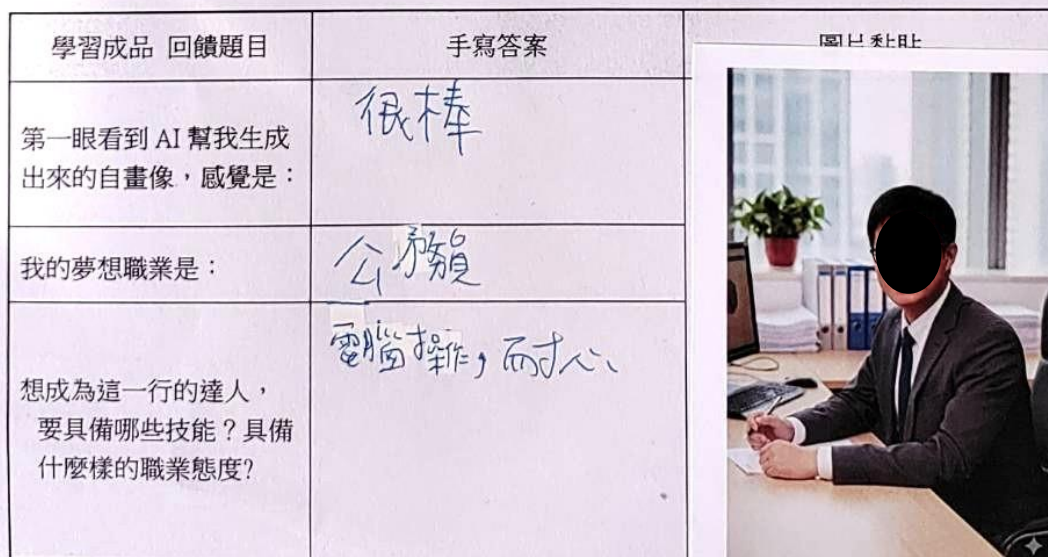 學習成品 回饋題目
手寫答案
圖片黏貼
第一眼看到 AI 幫我生成
出來的自畫像，感覺是：
很棒
我的夢想職業是：
公務員
想成為這一行的達人，
要具備哪些技能？具備
什麼樣的職業態度?
電腦操作，耐心、